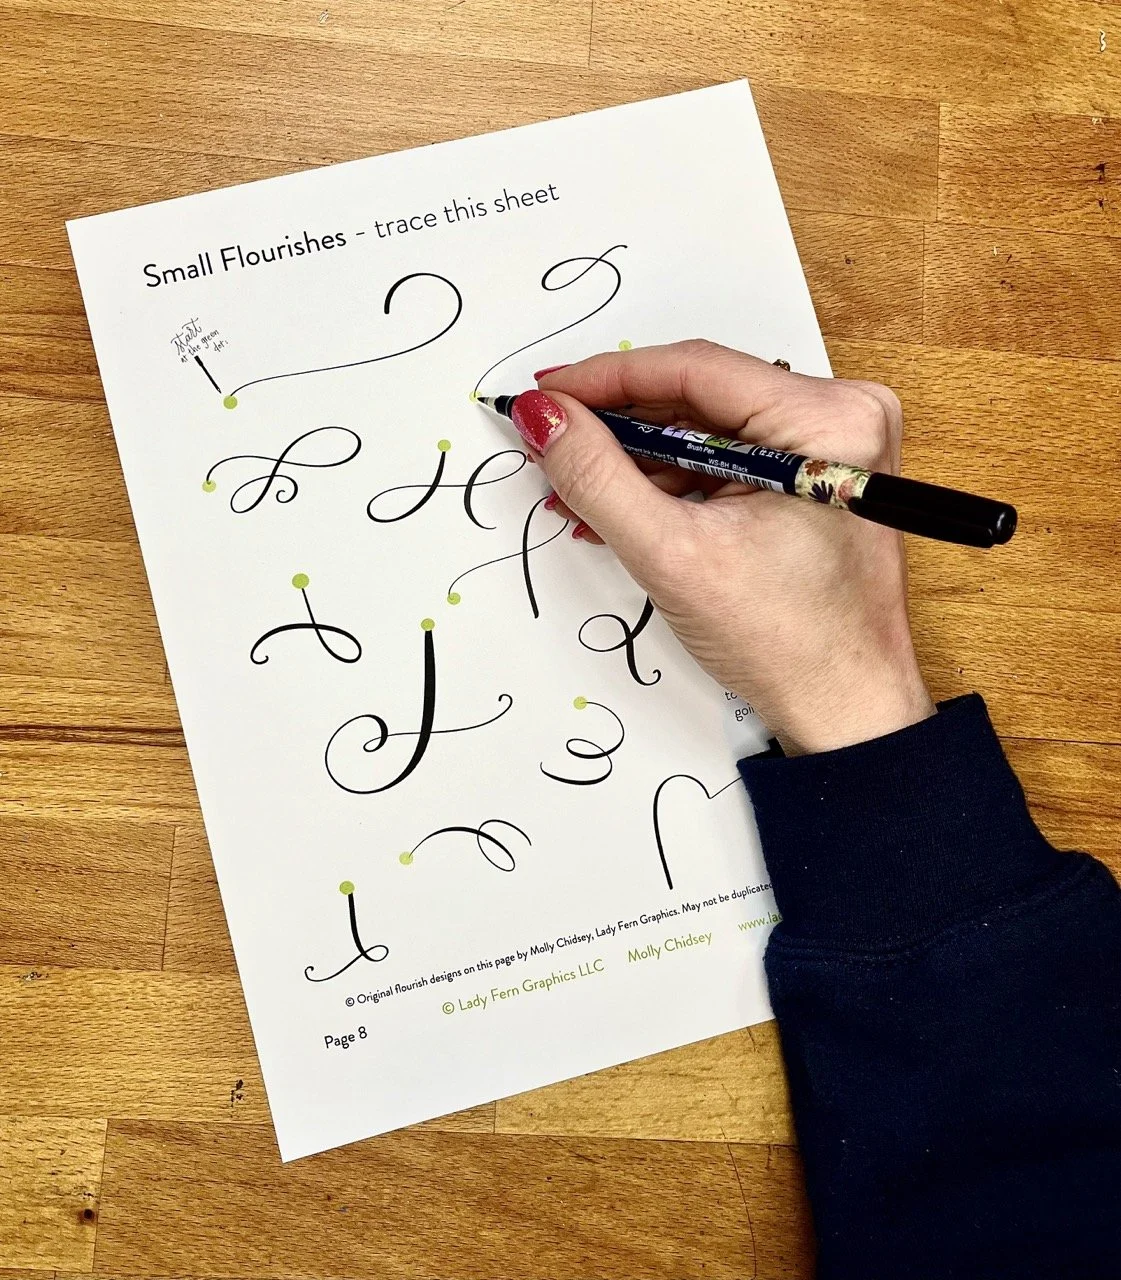 Small Flourishes - trace this sheet
start
at the green
dot:
Brush Pen
WS-BH Black
to
goi
© Original flourish designs on this page by Molly Chidsey, Lady Fern Graphics. May not be duplicated
© Lady Fern Graphics LLC Molly Chidsey www.lad
Page 8